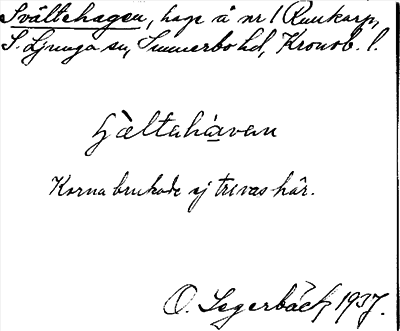 Svältehagen, hage å nr 1 Runkarp,
S. Ljunga sn, Sunnerbo hd, Kronob. l.
hàva̲n
Korna brukade ej trivas här.
O. Segerbäck, 1937.